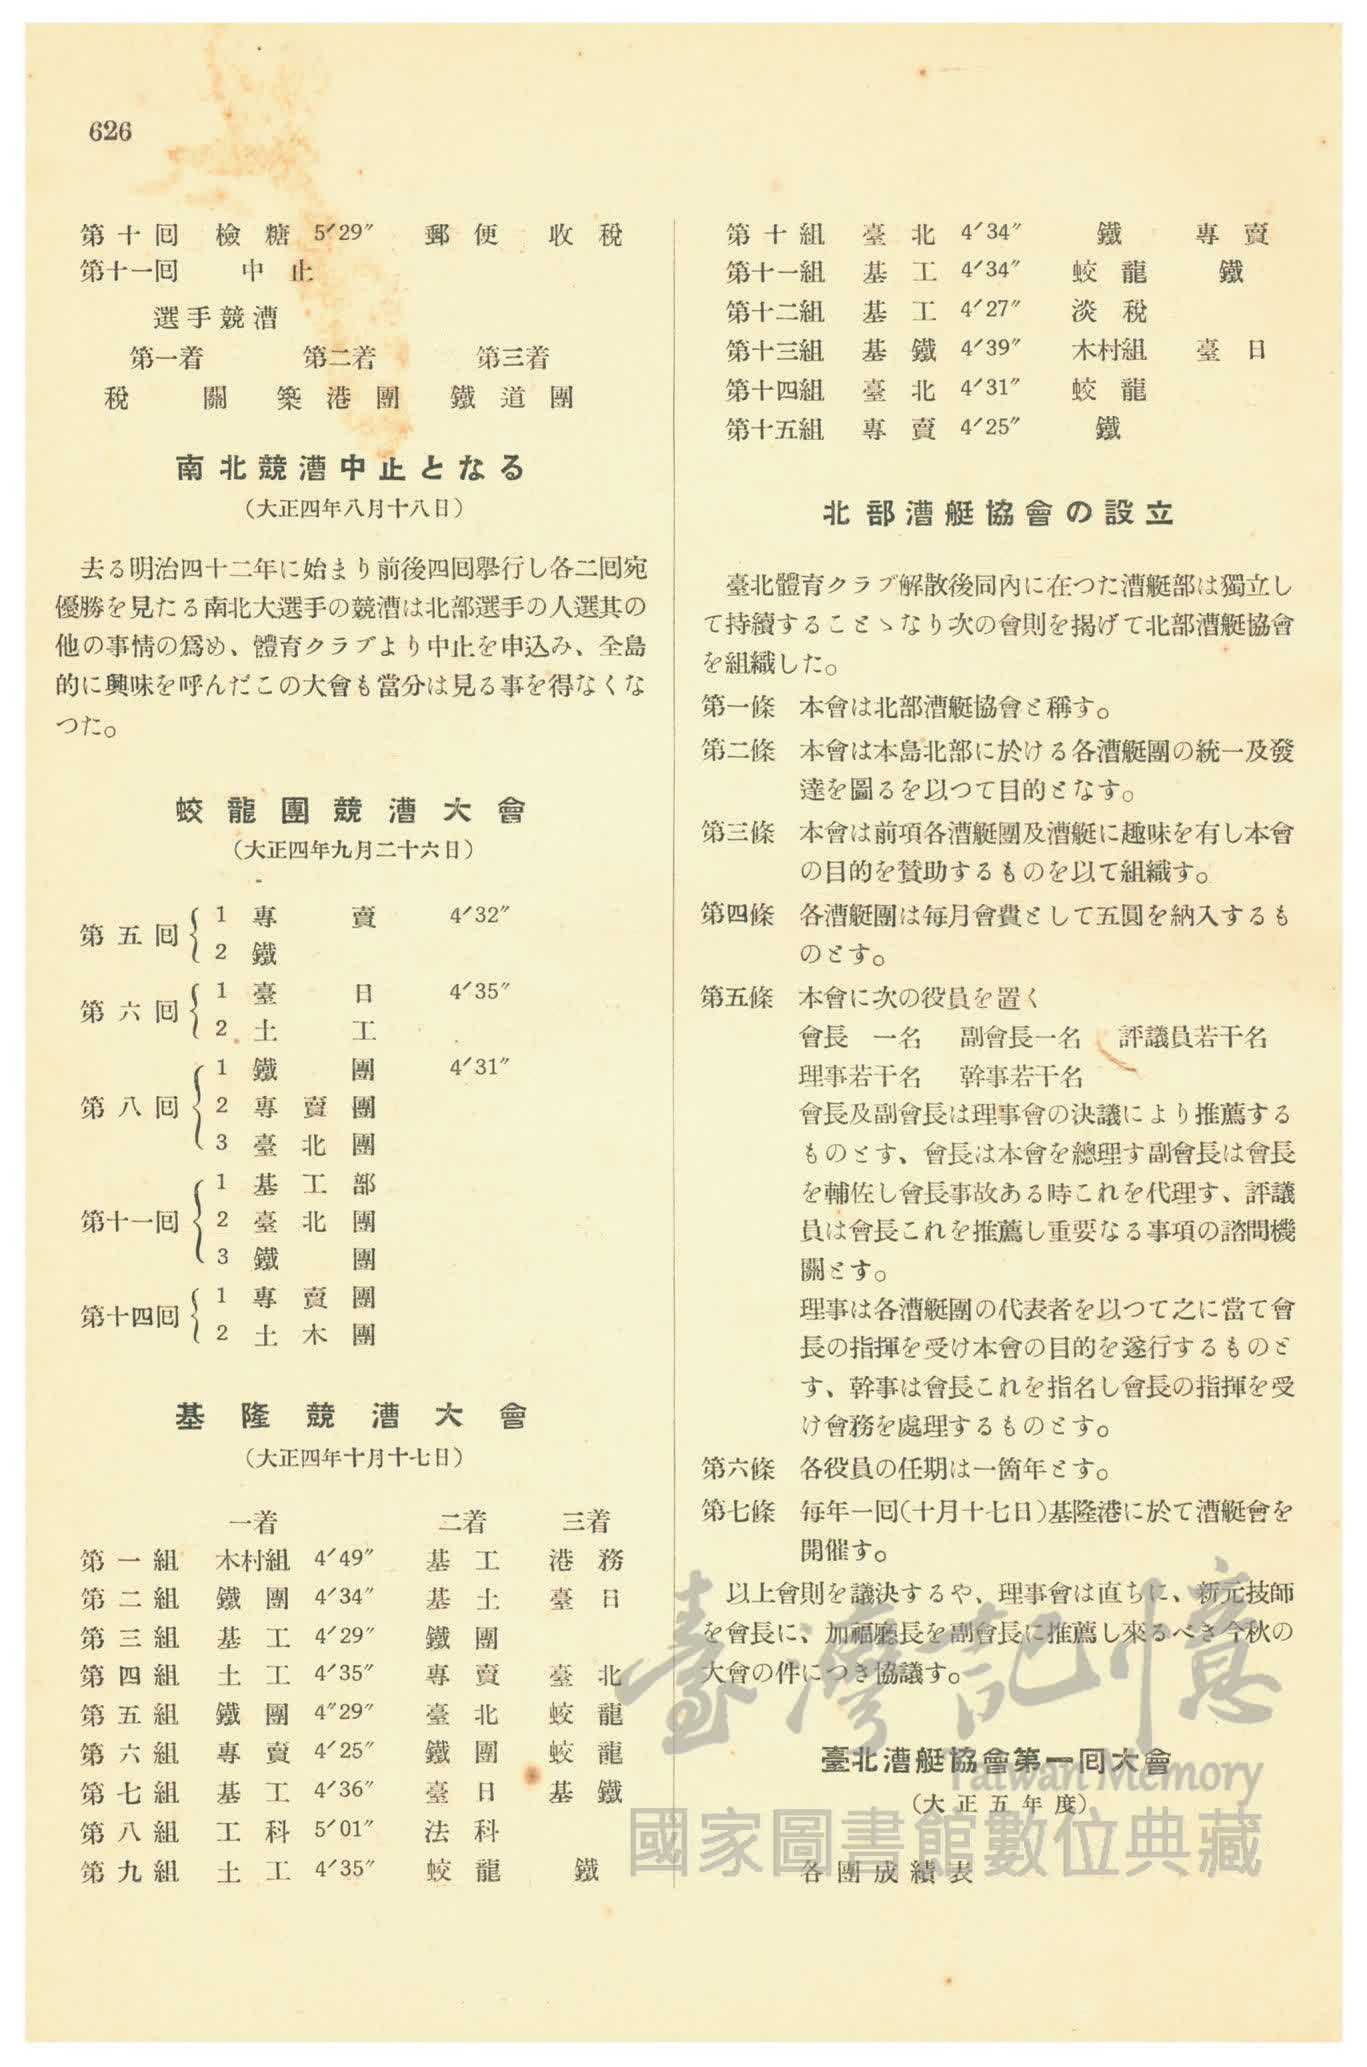 626
第十囘　檢糖　5′29″　郵便　收稅
第十一囘　中止
選手競漕
第一着　第二着　第三着
稅關　築港團　鐵道團
南北競漕中止となる
（大正四年八月十八日）
去る明治四十二年に始まり前後四囘擧行し各二囘宛
優勝を見たる南北大選手の競漕は北部選手の人選其の
他の事情の爲め、體育クラブより中止を申込み、全島
的に興味を呼んだこの大會も當分は見る事を得なくな
つた。
蛟龍團競漕大會
（大正四年九月二十六日）
第五囘　1　專賣　4′32″
2　鐵
第六囘　1　臺日　4′35″
2　土工
第八囘　1　鐵團　4′31″
2　專賣團
3　臺北團
第十一囘　1　基工部
2　臺北團
3　鐵團
第十四囘　1　專賣團
2　土木團
基隆競漕大會
（大正四年十月十七日）
一着　二着　三着
第一組　木村組　4′49″　基工　港務
第二組　鐵團　4′34″　基土　臺日
第三組　基工　4′29″　鐵團
第四組　土工　4′35″　專賣　臺北
第五組　鐵團　4″29″　臺北　蛟龍
第六組　專賣　4′25″　鐵團　蛟龍
第七組　基工　4′36″　臺日　基鐵
第八組　工科　5′01″　法科
第九組　土工　4′35″　蛟龍　鐵
第十組　臺北　4′34″　鐵　專賣
第十一組　基工　4′34″　蛟龍　鐵
第十二組　基工　4′27″　淡稅
第十三組　基鐵　4′39″　木村組　臺日
第十四組　臺北　4′31″　蛟龍
第十五組　專賣　4′25″　鐵
北部漕艇協會の設立
臺北體育クラブ解散後同內に在つた漕艇部は獨立し
て持續することゝなり次の會則を揭げて北部漕艇協會
を組織した。
第一條　本會は北部漕艇協會と稱す。
第二條　本會は本島北部に於ける各漕艇團の統一及發
達を圖るを以つて目的となす。
第三條　本會は前項各漕艇團及漕艇に趣味を有し本會
の目的を贊助するものを以て組織す。
第四條　各漕艇團は每月會費として五圓を納入するも
のとす。
第五條　本會に次の役員を置く
會長　一名　副會長一名　評議員若干名
理事若干名　幹事若干名
會長及副會長は理事會の決議により推薦する
ものとす、會長は本會を總理す副會長は會長
を輔佐し會長事故ある時これを代理す、評議
員は會長これを推薦し重要なる事項の諮問機
關とす。
理事は各漕艇團の代表者を以つて之に當て會
長の指揮を受け本會の目的を遂行するものと
す、幹事は會長これを指名し會長の指揮を受
け會務を處理するものとす。
第六條　各役員の任期は一箇年とす。
第七條　每年一囘（十月十七日）基隆港に於て漕艇會を
開催す。
以上會則を議決するや、理事會は直ちに、新元技師
を會長に、加福廳長を副會長に推薦し來るべき今秋の
大會の件につき協議す。
臺北漕艇協會第一囘大會
（大正五年度）
各團成績表
臺灣記憶
Taiwan Memory
國家圖書館數位典藏